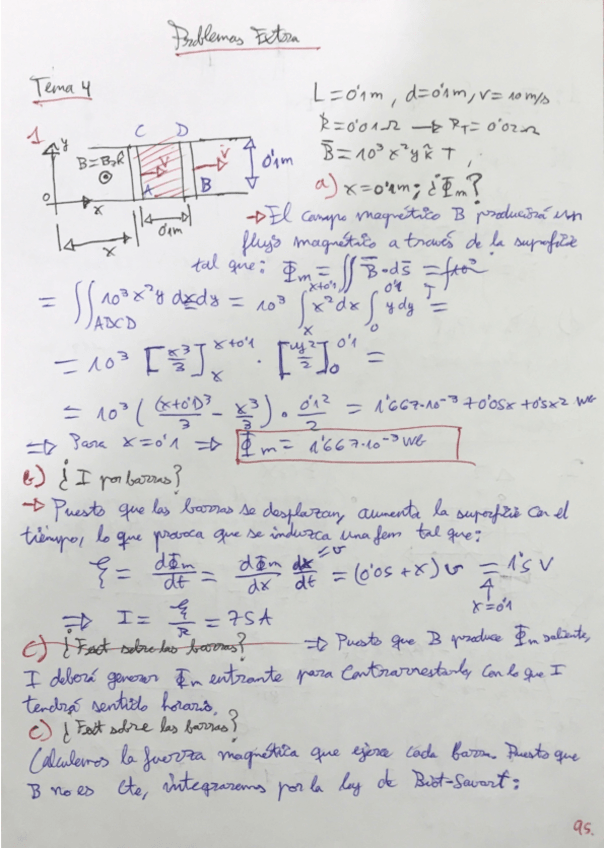 Problemas Extra
Tema 4
L = 0'1 m , d = 0'1 m, v = 10 m/s
R = 0'01 Ω → R_T = 0'02 Ω
B̄ = 10³ x² y k̂ T ,
1
y
C
D
B = B₀ k̂
v̄
v̄
0'1 m
A
B
0
x
x
0'1m
a) x = 0'1m; ¿Φm?
→ El campo magnético B producirá un
flujo magnético a través de la superficie
tal que: Φm = ∬ B̄ · ds̄ =
= ∬_ABCD 10³ x² y dx dy = 10³ ∫_x^{x+0'1} x² dx ∫_0^{0'1} y dy =
= 10³ [x³/3]_x^{x+0'1} · [y²/2]_0^{0'1} =
= 10³ ( (x+0'1)³/3 - x³/3 ) · 0'1²/2 = 1'667·10⁻³ + 0'05x + 0'5x² Wb
⇒ Para x = 0'1 ⇒ Φm = 1'667·10⁻³ Wb
b) ¿I por barras?
→ Puesto que las barras se desplazan, aumenta la superficie con el
tiempo, lo que provoca que se induzca una fem tal que:
ξ = dΦm/dt = dΦm/dx dx/dt = (0'05 + x) v = 1'5 V
= v
x = 0'1
⇒ I = ξ/R = 75 A
c) ¿Fext sobre las barras? ⇒ Puesto que B produce Φm saliente,
I deberá generar Φm entrante para contrarrestarlo, con lo que I
tendrá sentido horario.
c) ¿Fext sobre las barras?
Calculemos la fuerza magnética que ejerce cada barra. Puesto que
B no es cte, integraremos por la ley de Biot-Savart:
95.